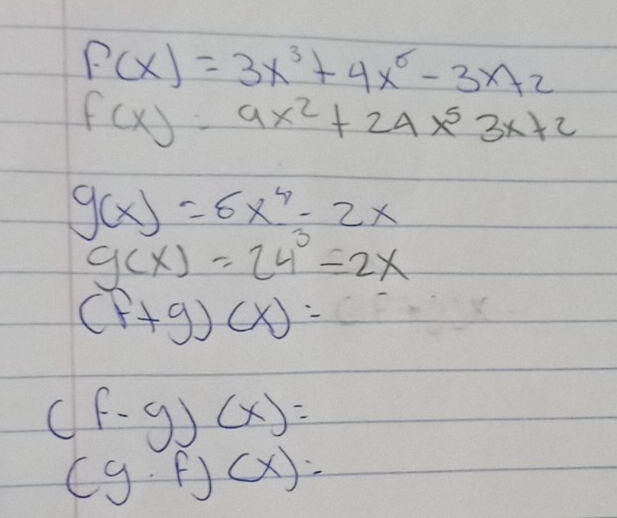 f(x) = 3x³ + 4x⁶ - 3x + 2
f(x) = 9x² + 24x⁵ 3x + 2
g(x) = 6x⁴ - 2x
g(x) = 24³ - 2x
(f+g)(x) =
(f-g)(x) =
(g·f)(x) =